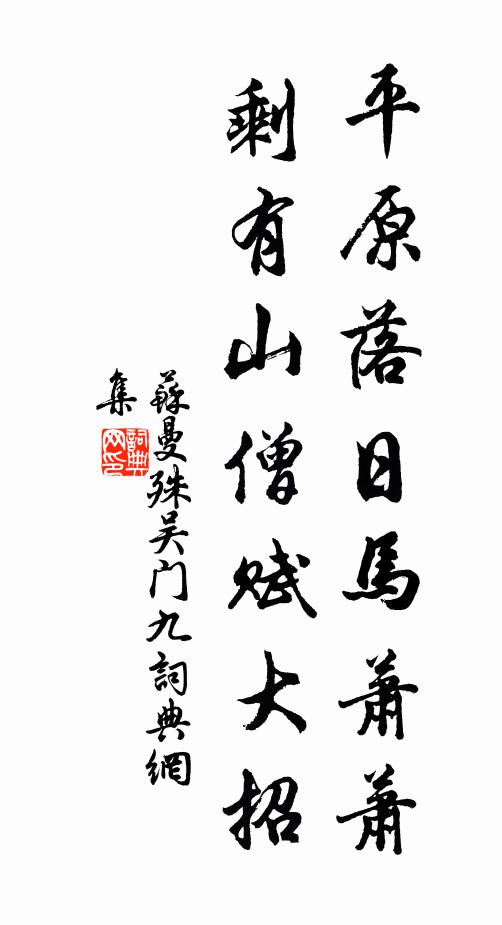 平原落日馬蕭蕭
剩有山僧賦大招
蘇曼殊吴门九詞典網
集
詞典網印